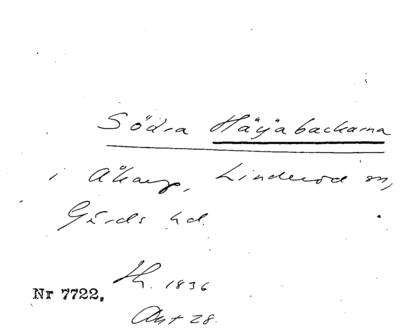 Södra Häjabackarna
i Åkarp, Linderöd sn,
Gärds hd.
Nr 7722.
1836
Akt 28.